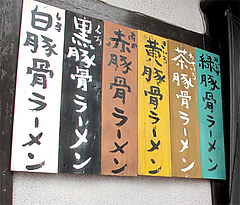 白豚骨ラーメン
黒豚骨ラーメン
赤豚骨ラーメン
黄豚骨ラーメン
茶豚骨ラーメン
緑豚骨ラーメン